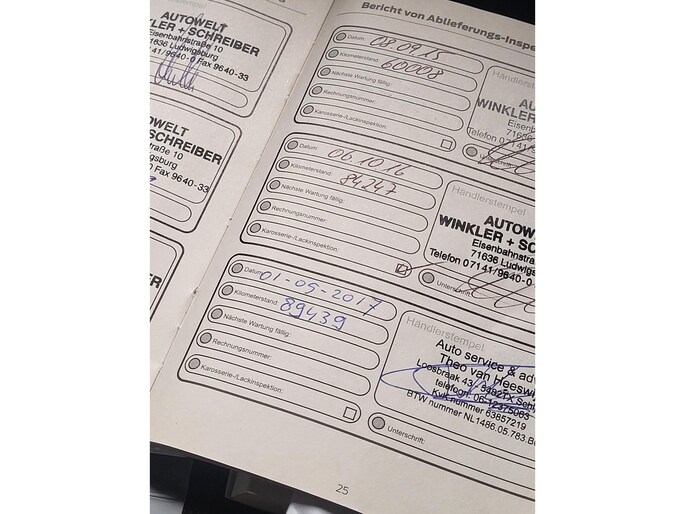 AUTOWELT
KLER + SCHREIBER
Eisenbahnstraße 10
71636 Ludwigsburg
/9640-0 Fax 9640-33
WELT
SCHREIBER
straße 10
gsburg
0 Fax 9640-33
ER
Bericht von Ablieferungs-Inspe
Datum: 08.09.15
Kilometerstand: 60008
Nächste Wartung fällig:
Rechnungsnummer:
Karosserie-/Lackinspektion:
Händlerstempel
AUT
WINKLER +
Eisenb
7163
Telefon 07141
Datum: 06.10.16
Kilometerstand: 84247
Nächste Wartung fällig:
Rechnungsnummer:
Karosserie-/Lackinspektion:
Händlerstempel
AUTOW
WINKLER + SC
Eisenbahnstra
71636 Ludwigsb
Telefon 07141/9640-0
Unterschrift:
Datum: 01-05-2017
Kilometerstand: 89439
Nächste Wartung fällig:
Rechnungsnummer:
Karosserie-/Lackinspektion:
Händlerstempel
Auto service & adv
Theo van Heeswij
Loosbraak 43
telefoon:
KvK nummer 63857219
BTW nummer NL1486.05.783.B
Unterschrift:
25